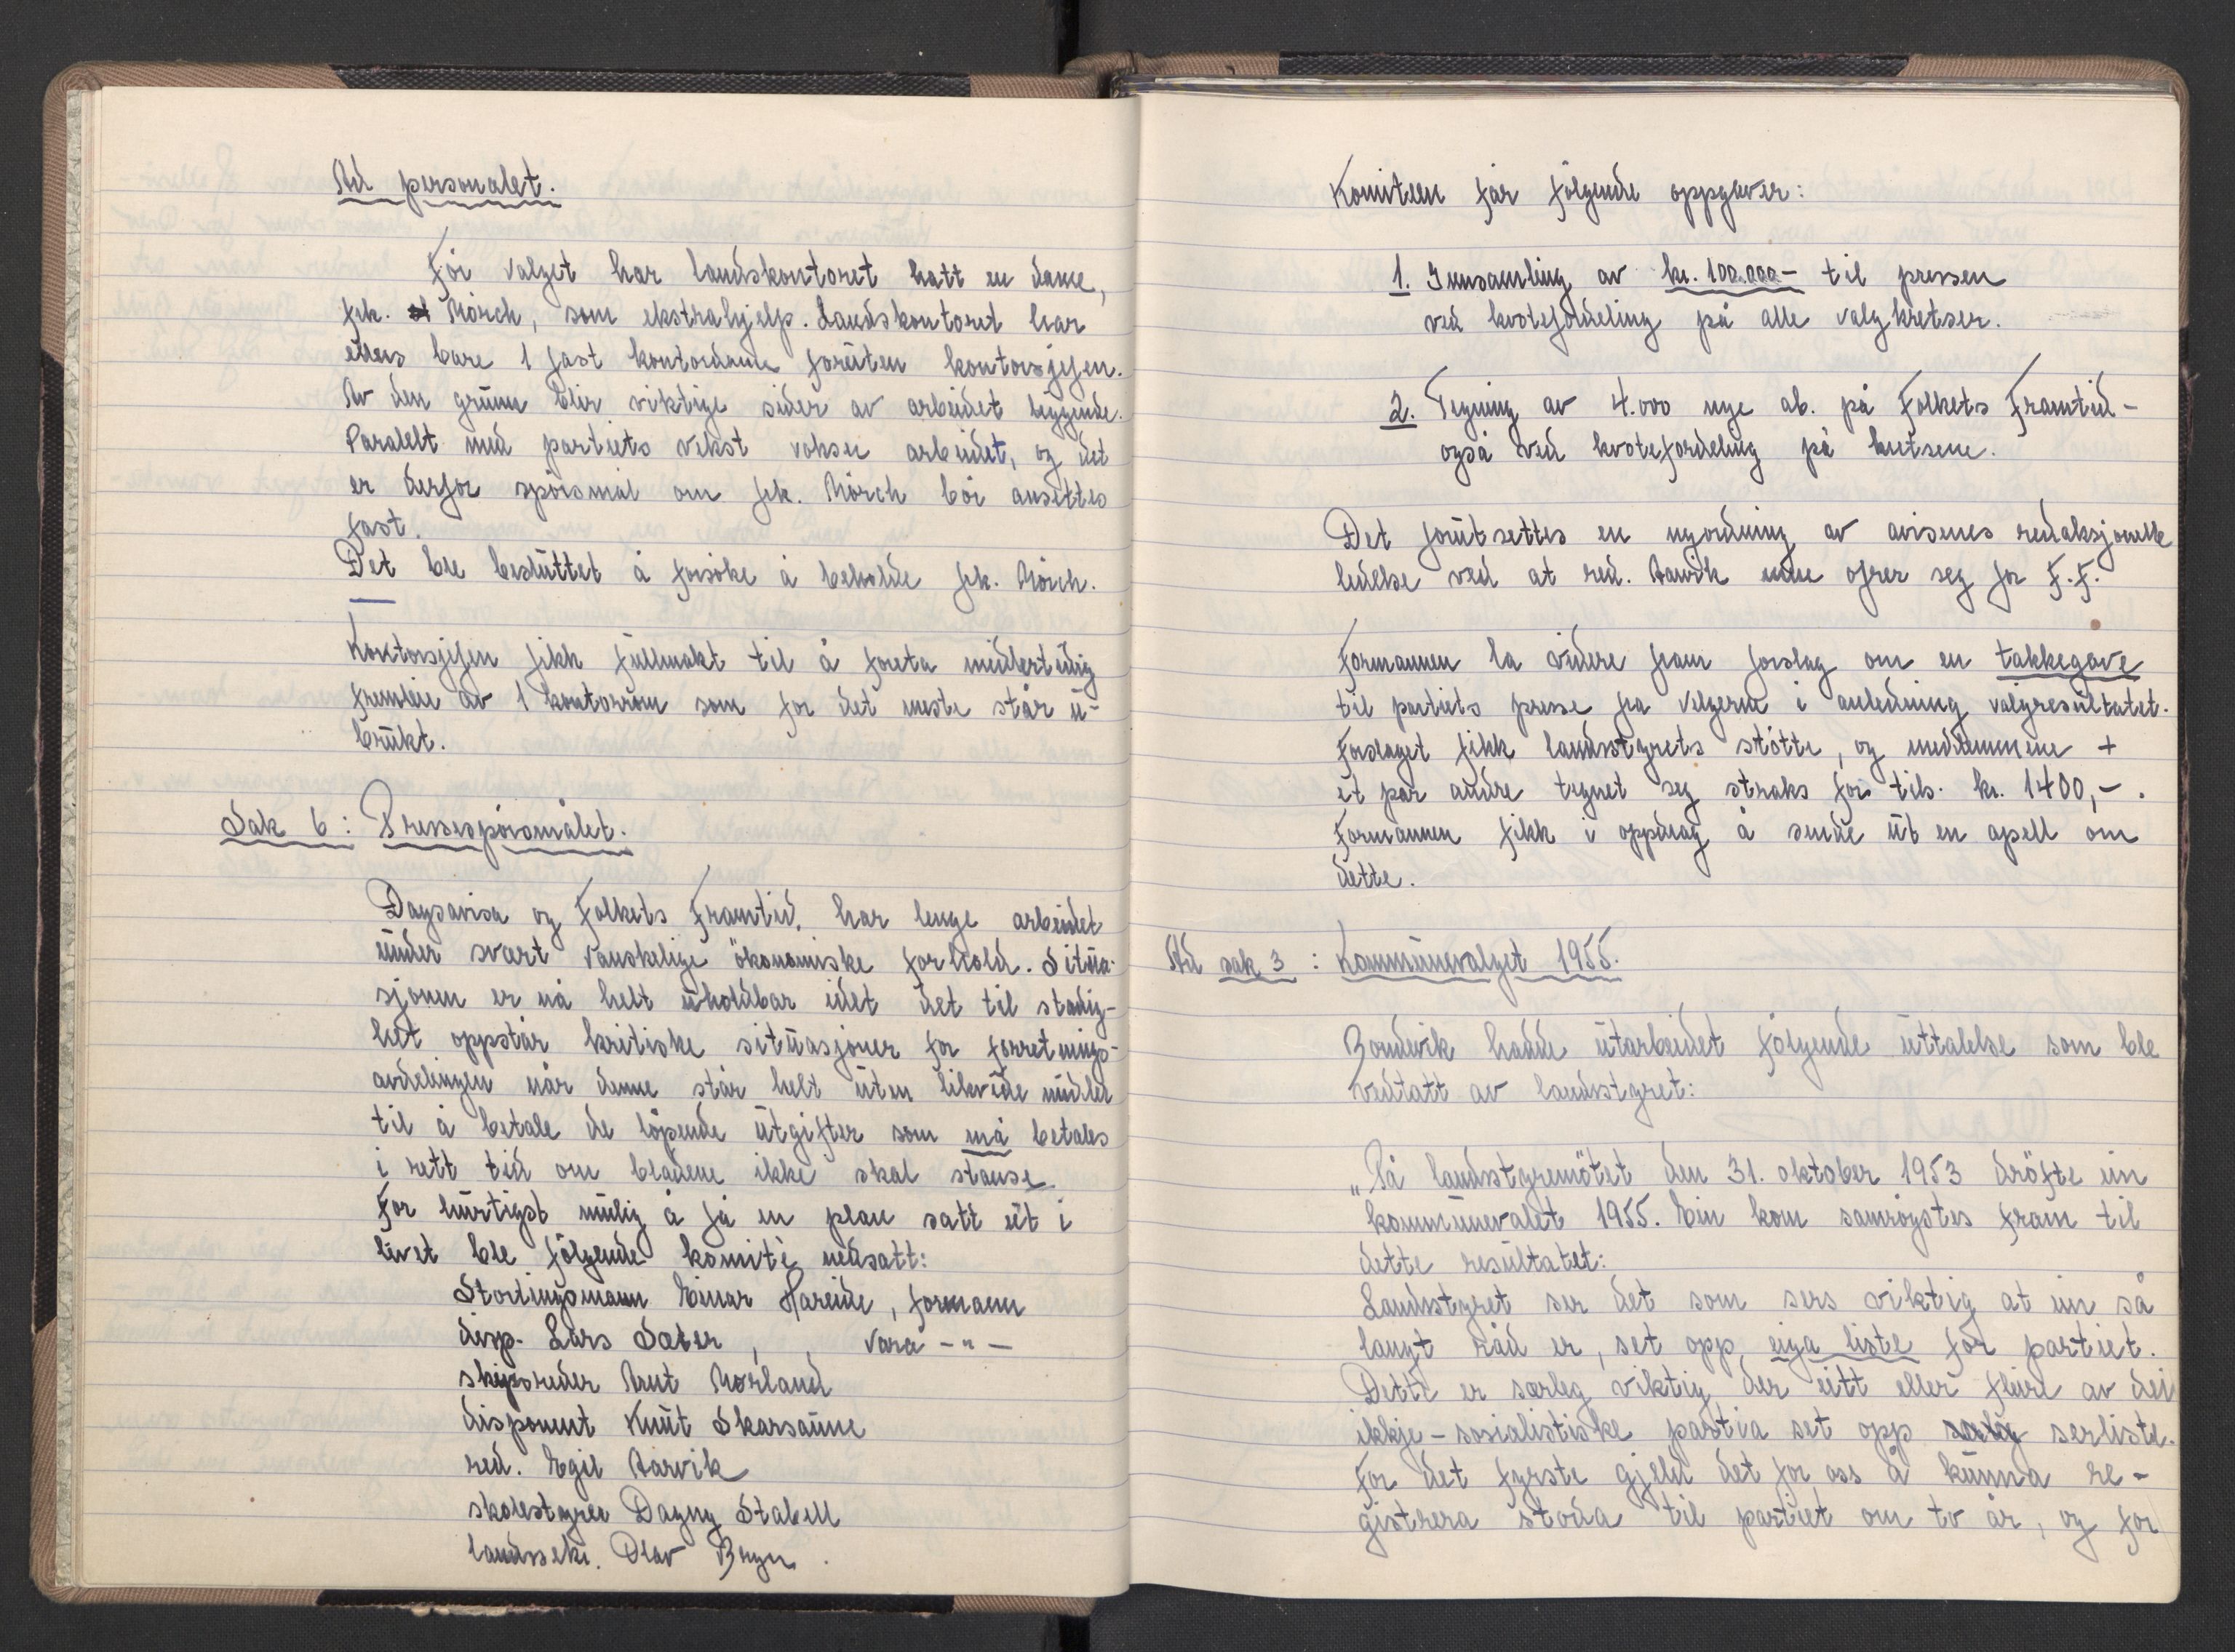 Ad personalet.
För valget har landskontoret hatt en dame,
frk. Mörch, som ekstrahjelp. Landskontoret har
ellers bare 1 fast kontordame foruten kontorsjefen.
Av den grunn blir viktige sider av arbeidet liggende.
Paralelt med partiets vekst vokser arbeidet, og det
er derfor spörsmål om frk. Mörch bör ansettes
fast.
Det ble besluttet å forsöke å beholde frk. Mörch.
Kontorsjefen fikk fullmakt til å foreta midlertidig
fremleie av 1 kontorrom som for det meste står u-
brukt.
Sak 6: Pressespörsmålet.
Dagsavisa og Folkets Framtid, har lenge arbeidet
under svært vanskelige ökonomiske forhold. Situa-
sjonen er nå helt uholdbar idet det til stadig-
het oppstår kritiske situasjoner for forretnings-
avdelingen når denne står helt uten likvide midler
til å betale de löpende utgifter som må betales
i rett tid om bladene ikke skal stanse.
For hurtigst mulig å få en plan satt ut i
livet ble fölgende komite nedsatt:
Stortingsmann Einar Hareide, formann
disp. Lars Sæter, vara -"-
skipsreder Knut Mørland
disponent Knut Skarsaune
red. Egil Aarvik
skolestyrer Dagny Stabell
landssekr. Olav Bryn.
Komiteen får fölgende oppgaver:
1. Innsamling av kr. 100.000- til pressen
ved kvotefordeling på alle valgkretser.
2. Tegning av 4.000 nye ab. på Folkets Framtid-
også ved kvotefordeling på kretsene.
Det forutsettes en nyordning av avisenes redaksjonelle
ledelse ved at red. Aarvik ofrer seg for F.F.
Formannen la videre fram forslag om en takkegave
til partiets presse fra velgerne i anledning valgresultatet.
Forslaget fikk landsstyrets stötte, og medlemmene +
et par andre tegnet seg straks for tils. kr. 1400,-.
Formannen fikk i oppdrag å sende ut en apell om
dette.
Ad sak 3: Kommunevalget 1955.
Bondevik hadde utarbeidet fölgende uttalelse som ble
vedtatt av landsstyret:
„På landsstyremötet den 31. oktober 1953 dröfte ein
kommunevalet 1955. Ein kom samröystes fram til
dette resultatet:
Landsstyret ser det som sers viktig at ein så
langt råd er, set opp eiga liste for partiet.
Dette er særleg viktig der eitt eller fleire av dei
ikkje-sosialistiske partia set opp serliste.
For det fyrste gjeld det for oss å kunna re-
gistrera stoda til partiet om to år, og for